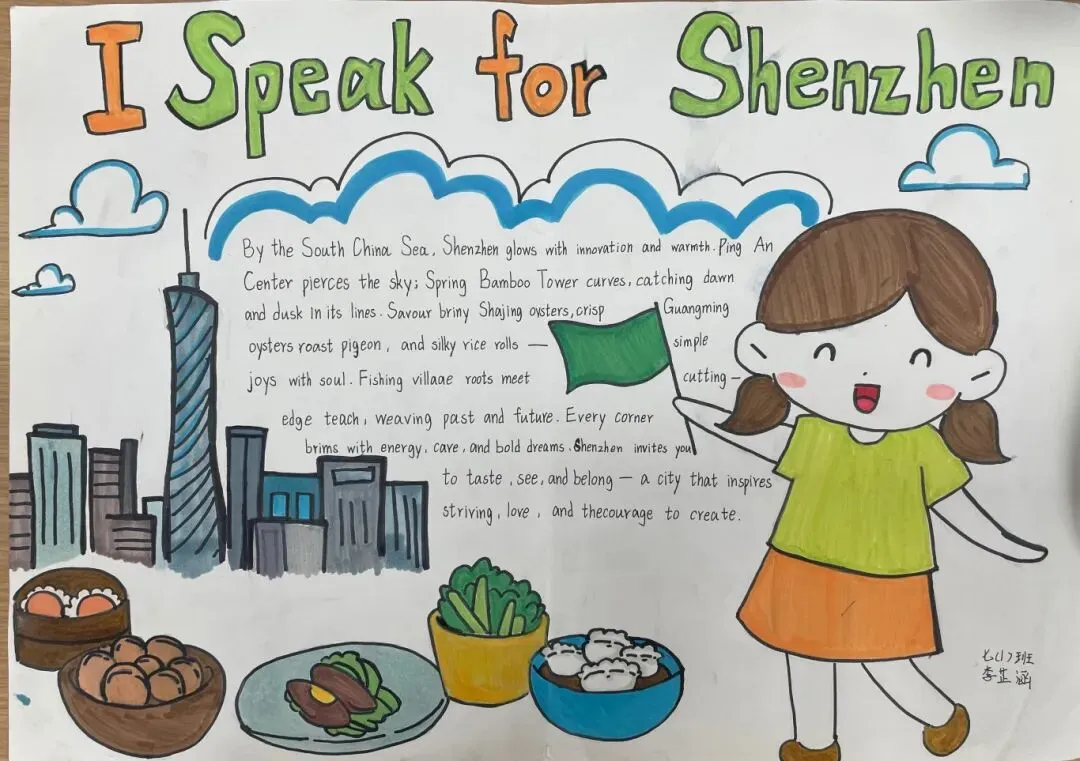 I Speak for Shenzhen
By the South China Sea, Shenzhen glows with innovation and warmth. Ping An
Center pierces the sky; Spring Bamboo Tower curves, catching dawn
and dusk in its lines. Savour briny Shajing oysters, crisp Guangming
oysters roast pigeon, and silky rice rolls — simple
joys with soul. Fishing villaae roots meet cutting —
edge teach, weaving past and future. Every corner
brims with energy, cave, and bold dreams. Shenzhen invites you
to taste, see, and belong — a city that inspires
striving, love, and thecourage to create.
七(1)班
李芷涵